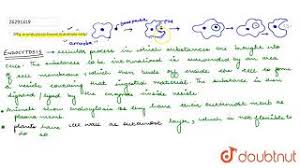 26291619
Why is endocytosis found in animals only
food particle
amoeba
ENDOCYTOSIS → cellular process in which substances are brought into
cell. The substance to be internalised is surrounded by an area
of cell membrane, which then buds off inside the cell to form
a vesicle containing the ingested material. The substance is then
digested / lysed by the enzymes inside vesicle
• Animals show endocytosis as they have outer membrane as
plasma memb.
• plants have cell wall as outermost layer, which is not flexible to
do so
doubtnut